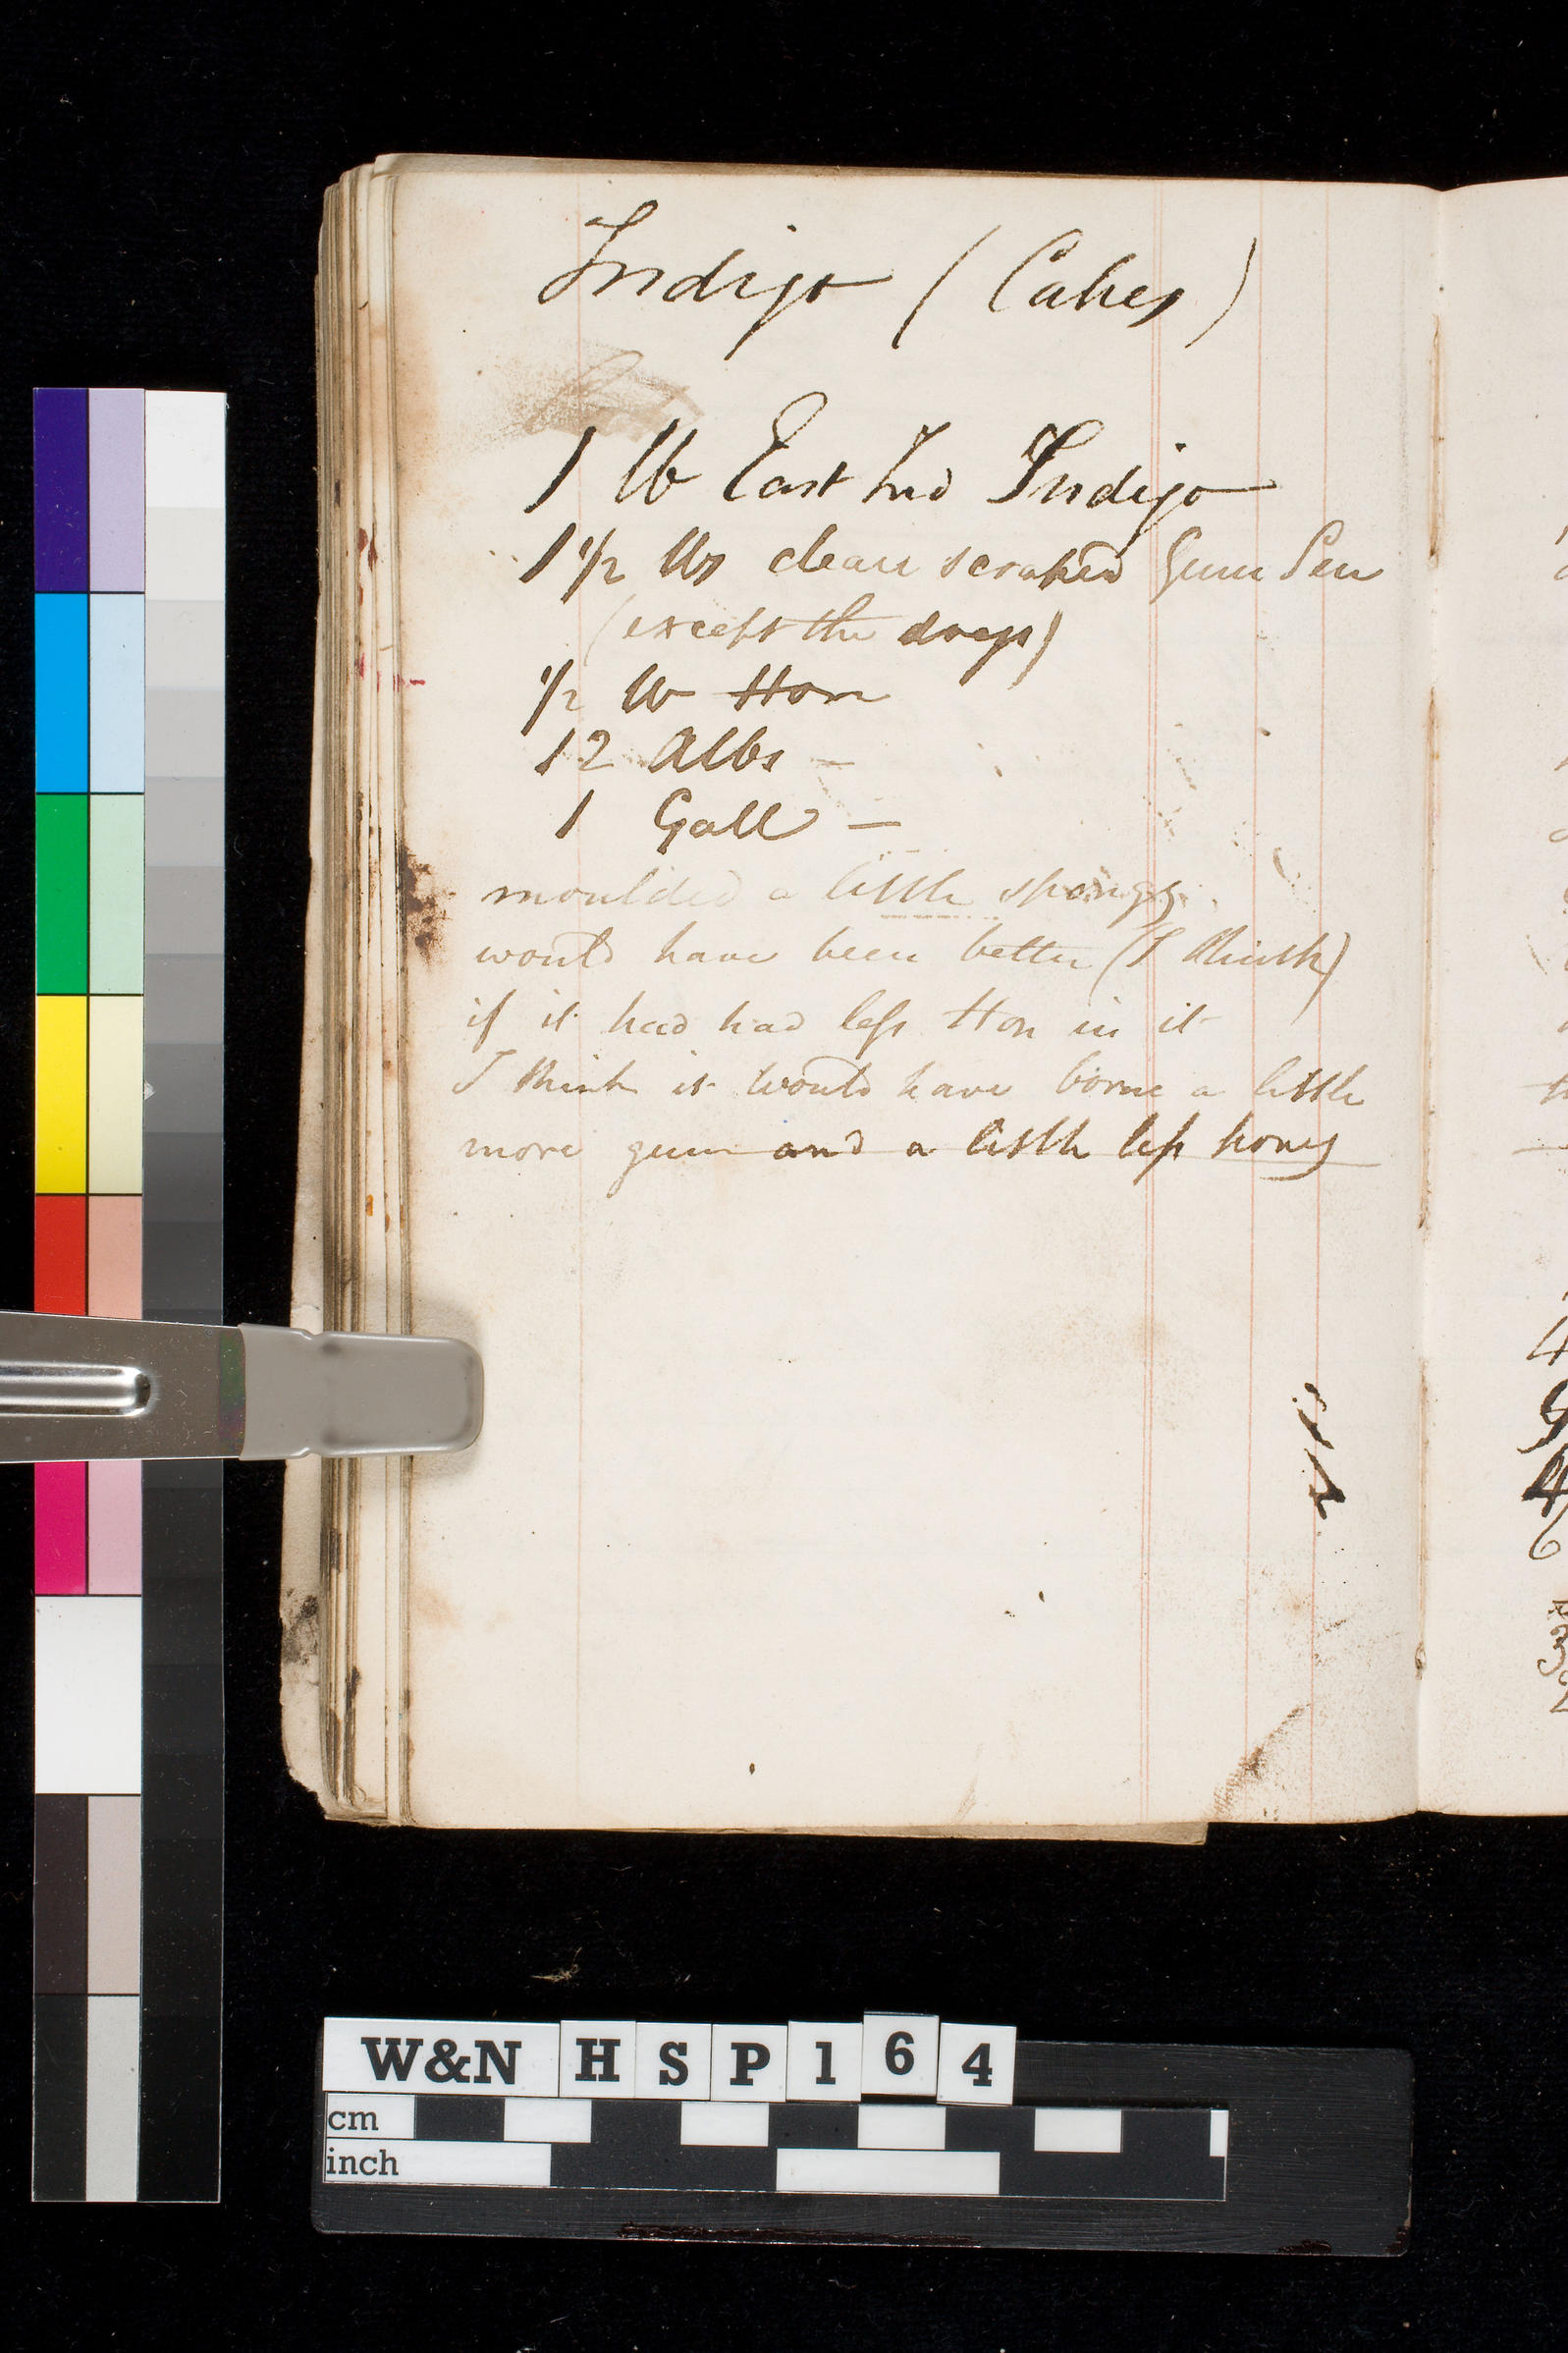 Indigo (Cakes)
1 lb East Ind Indigo
1 1/2 lbs clean scraped Gum Sen
(except the dregs)
1/2 lb Hon
12 Albs –
1 Gall –
moulded a little spongy.
would have been better (I think)
if it had had less Hon in it
I think it would have borne a little
more gum and a little less honey
4
9
4
6
3
2
W&N HSP164
cm
inch